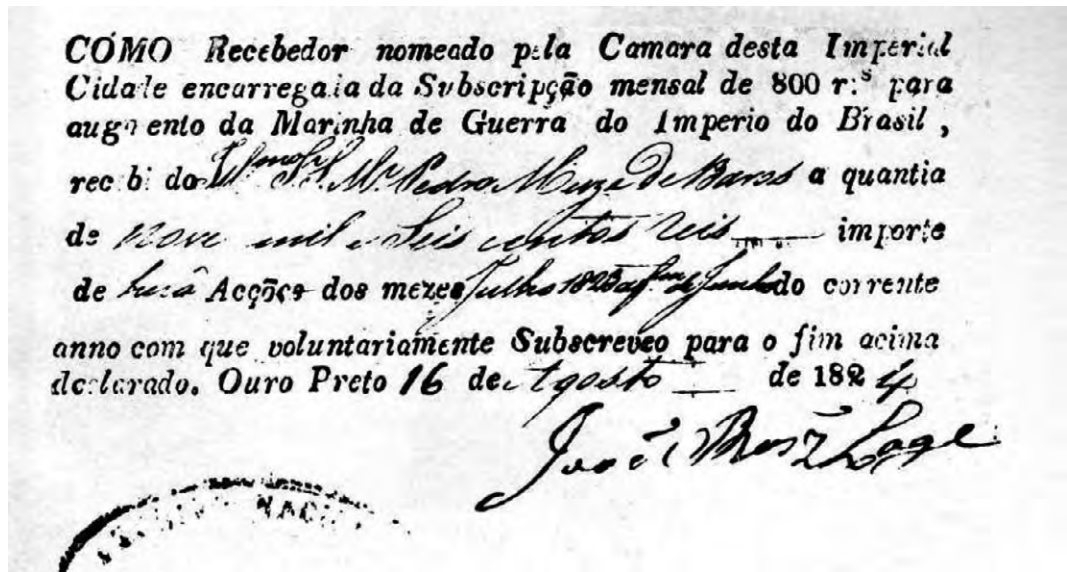 CÓMO Recebedor nomeado pela Camara desta Imperial
Cidade encarregada da Subscripção mensal de 800 r.s para
augmento da Marinha de Guerra do Imperio do Brasil,
recebi do Illmo Sr. Pedro de a quantia
de Nove mil e Seis centos Reis importe
de Acções dos mezes Julho 1823 de Junho do corrente
anno com que voluntariamente Subscreveo para o fim acima
declarado. Ouro Preto 16 de Agosto de 1824
João Lage
NACI